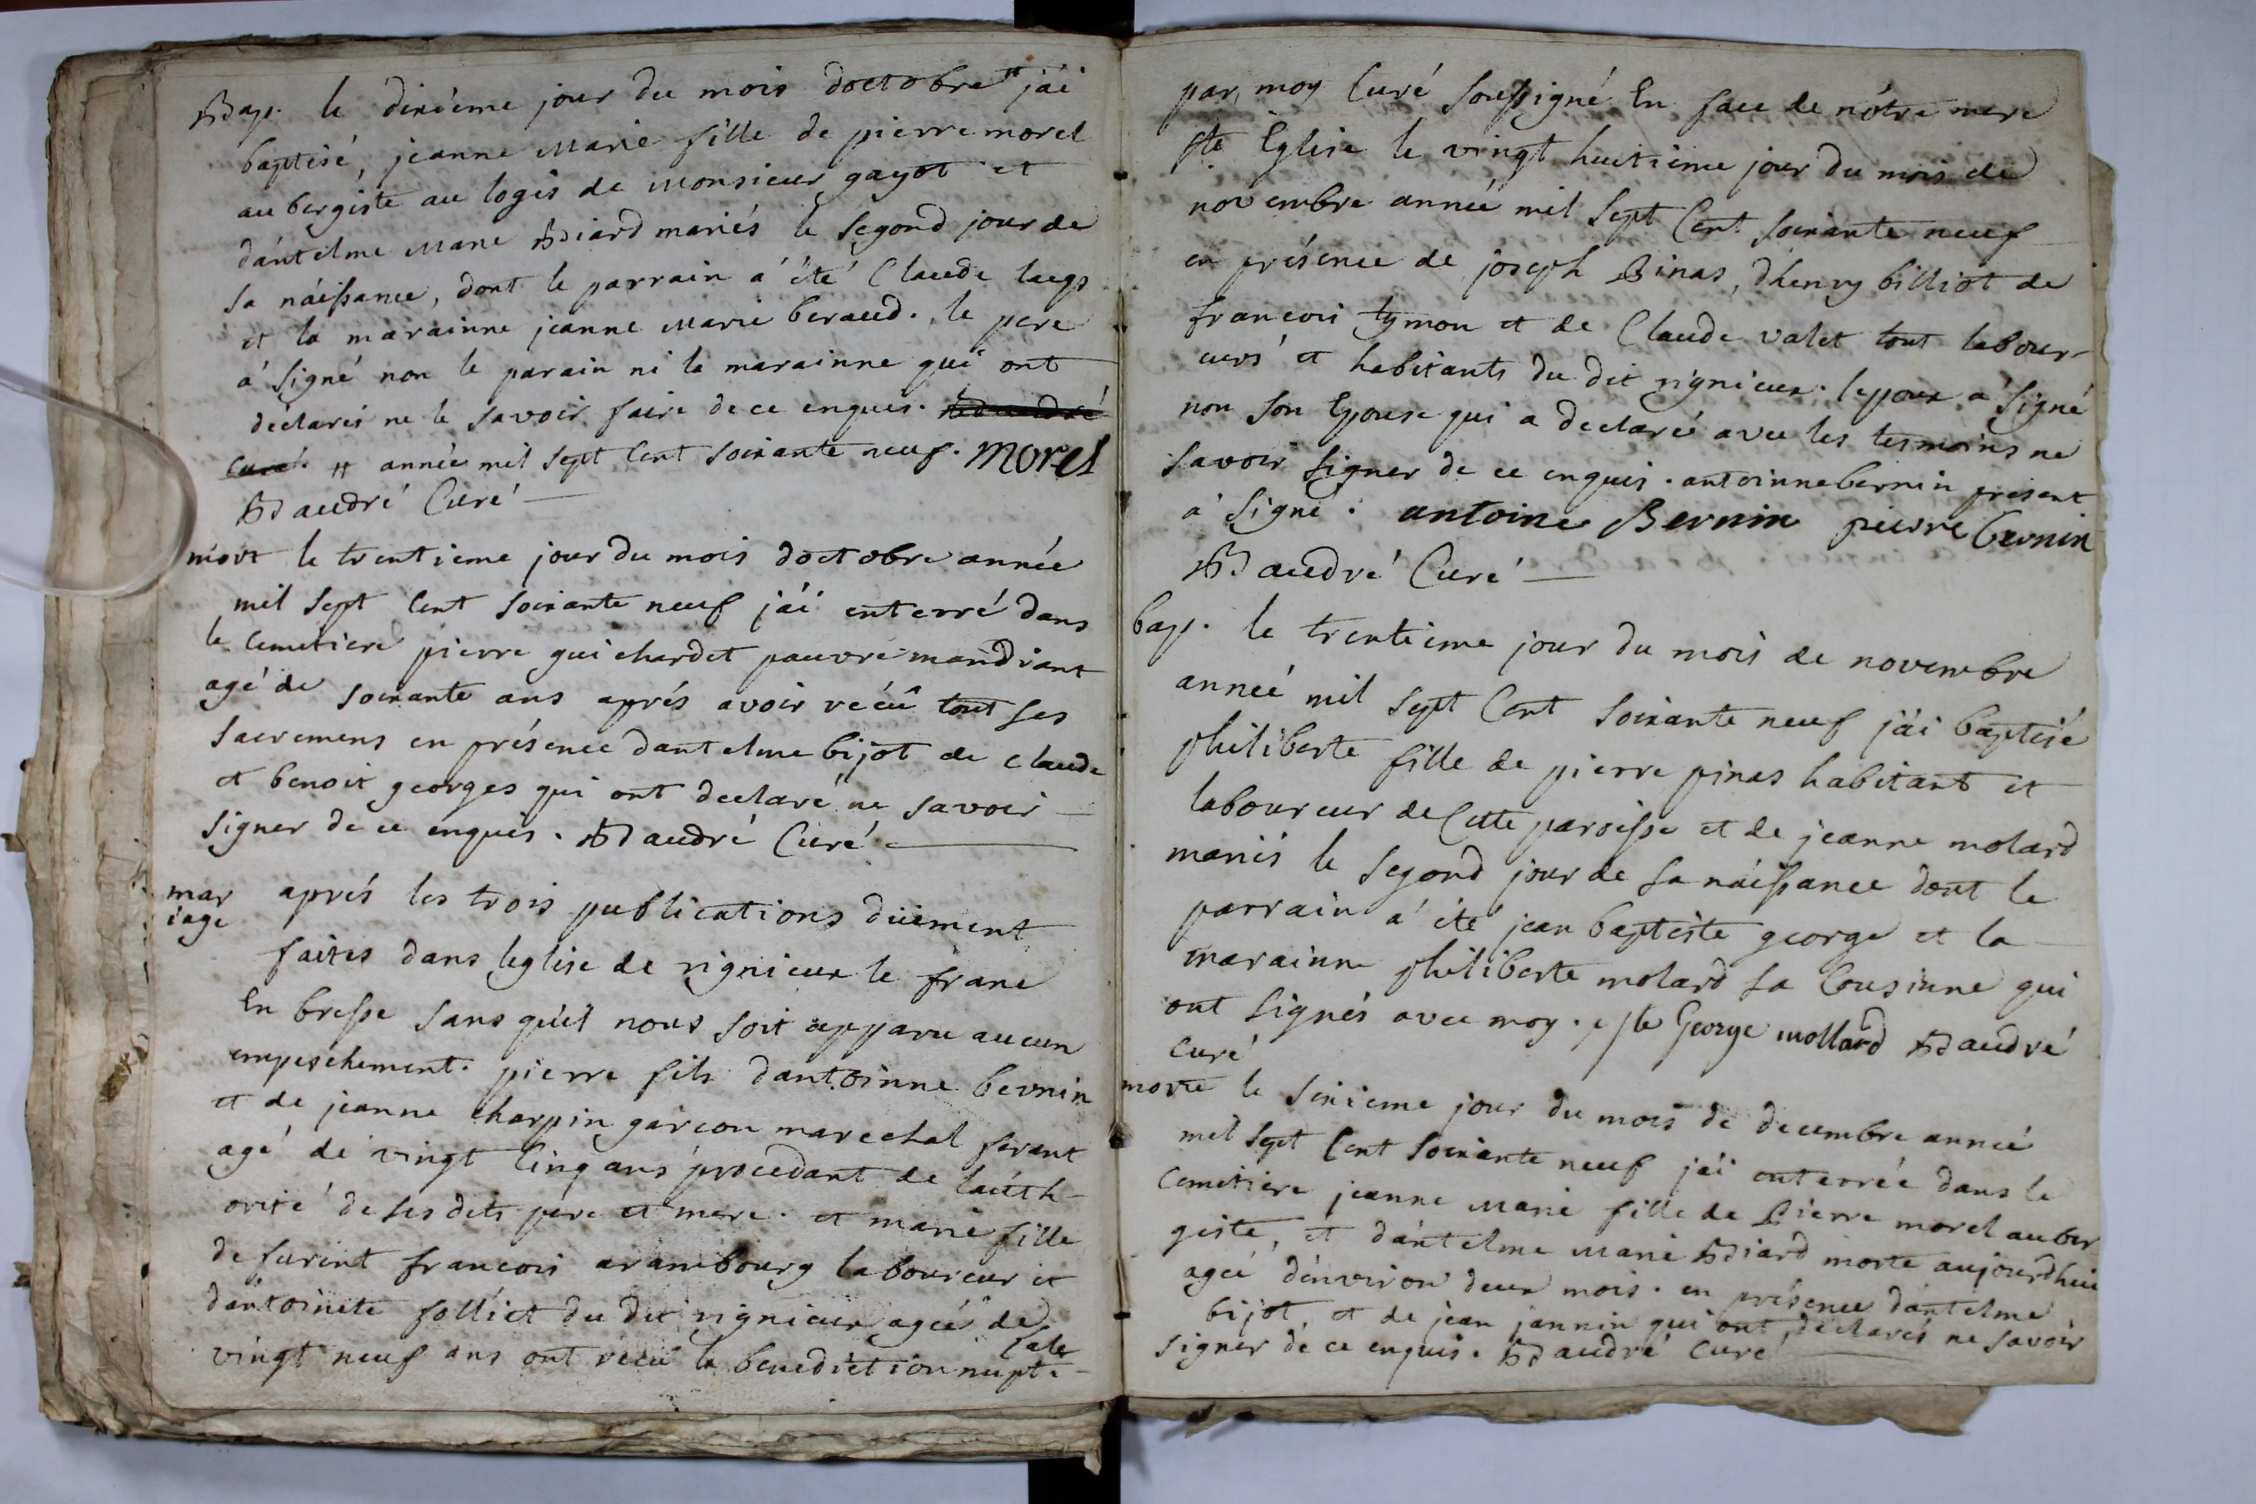 Bap. le dixiéme jour du mois doctobre # jái
baptisé, jeanne Marie fille de pierre morel
aubergiste au logis de Monsieur gayot et
dántelme Marie Biard mariés le segond jour de
sa náissance, dont le parrain á été Claude laup
et la marainne jeanne Marie beraud. le pere
á signé non le parain ni la marainne qui ont
déclarés ne le savoir faire de ce enquis. Baudré
Curé. # année mil sept Cent soixante neuf. Morel
Baudré Curé
mort le trentieme jour du mois doctobre année
mil sept Cent soixante neuf jái enterré dans
le Cemetiere pierre guichardet pauvre mandiant
agé de soixante ans aprés avoir récû tout ses
sacremens en présence dantelme bijot de Claude
et benoit georges qui ont declaré ne savoir
signer de ce enquis. Baudré Curé
mar
iage aprés les trois publications düement
faites dans leglise de rignieux le franc
En bresse sans quél nous soit apparu aucun
empeschement. pierre fils dantoinne bernin
et de jeanne charpin garcon marechal ferant
agé de vingt Cinq ans procedant de láuth-
orité de ses dits pére et mere. et marie fille
de furent francois arambourg laboureur et
dántoinete folliet du dit rignieux agée de
vingt neuf ans ont récu la benediction nupt-
iale
par moy Curé soussigné En face de nótre mere
Ste Eglise le vingt huitiéme jour du mois de
novembre année mil sept Cent soixante neuf
en présence de joseph Binas, dhenry billiot de
francois tymon et de Claude valet tout labour-
eurs et habitants du dit rignieux. lepoux á signé
non son Epouse qui a declaré avec les tesmoins ne
savoir signer de ce enquis. antoinne bernin present
á signé. antoine Bernin pierre bernin
Baudré Curé
bap. le trentieme jour du mois de novembre
année mil sept Cent soixante neuf jái baptisé
philiberte fille de pierre pinas habitant et
laboureur de Cette paroisse et de jeanne molard
mariés le segond jour de sa náissance dont le
parrain á été jean baptiste george et la
marainne philiberte molard sa Cousinne qui
ont signés avec moy. George mollard Baudré
Curé
morte le sixieme jour du mois de decembre année
mil sept Cent soixante neuf jái enterrée dans le
Cemetiere jeanne Marie fille de Pierre morel auber
giste, et dántelme Marie Biard morte aujourdhui
agée dénviron deux mois. en présence dántelme
bijot et de jean jannin qui ont declarés ne savoir
signer de ce enquis. Baudré Curé